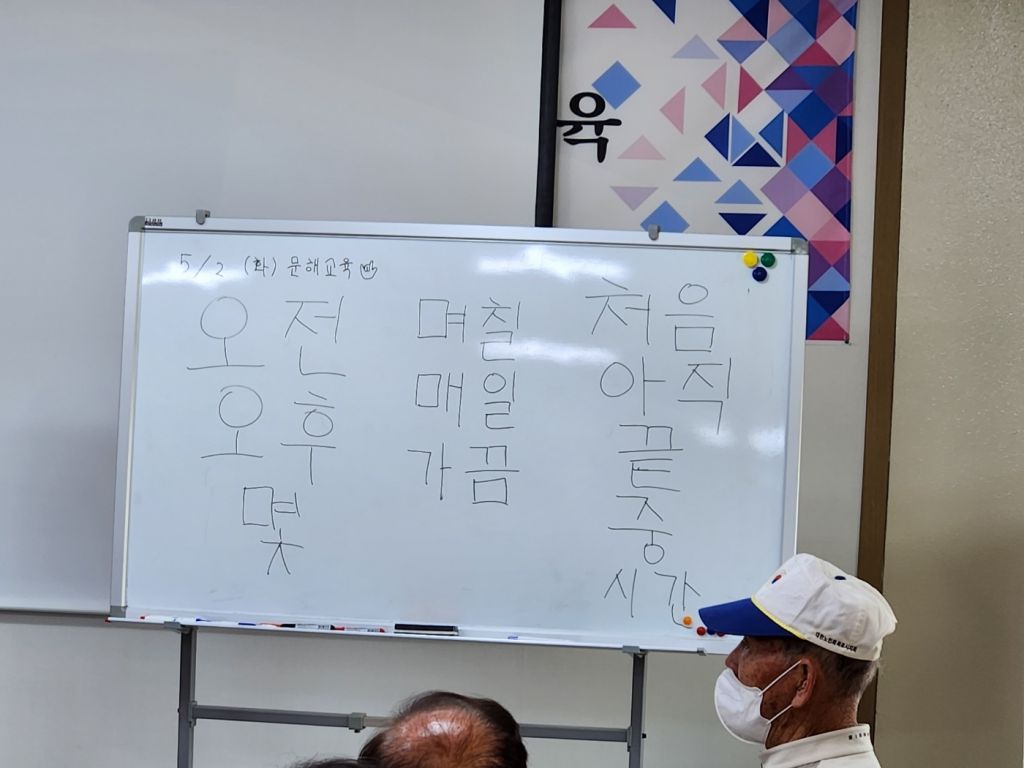 육
5/2 (화) 문해교육
오전
오후
몇
며칠
매일
가끔
처음
아직
끝
중
시간